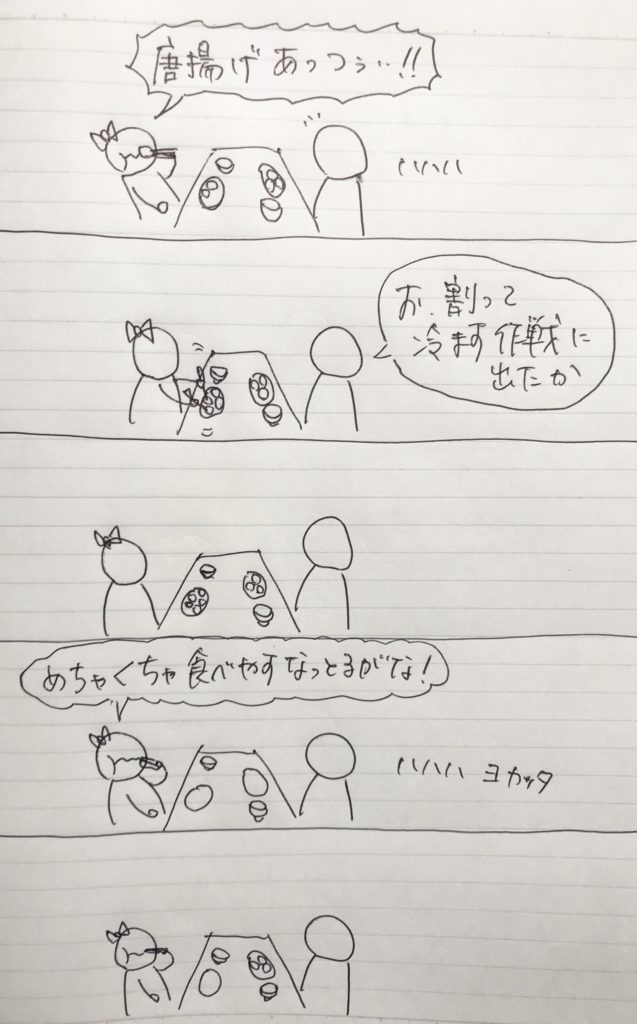 唐揚げあっつぅ…!!
ハハハハ
お、割って
冷ます作戦に
出たか
めちゃくちゃ食べやすなっとるがな!
ハハハハ ヨカッタ